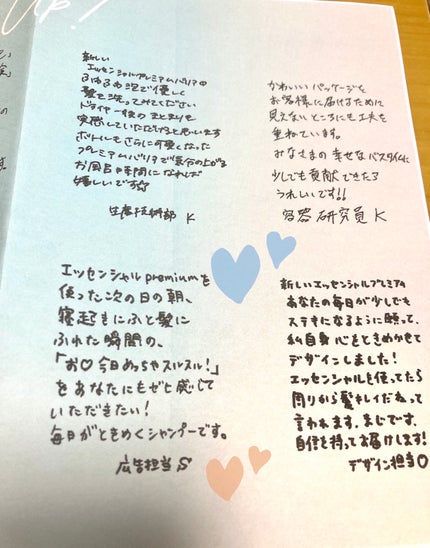 Up!
新しい
エッセンシャルプレミアムバリアの
ふゆるわ泡で優しく
髪を洗ってみてください
ドライヤー後のまとまりを
実感していただけると思います
ボトルもさらに可愛くなった
プレミアムバリアで気分の上がる
お風呂時間になれば
嬉しいです☆
生産技術部 K
かわいいパッケージを
お客様に届けるために
見えないところにも工夫を
重ねています。
みなさまの幸せなバスタイムに
少しでも貢献できたら
うれしいです!!
容器研究員 K
エッセンシャルpremiumを
使った次の日の朝、
寝起きにふと髪に
ふれた瞬間の、
「お♡今日めっちゃスルスル!」
をあなたにもぜひ感じて
いただきたい!
毎日がときめくシャンプーです。
広告担当 S
新しいエッセンシャルプレミアム
あなたの毎日が少しでも
ステキになるように願って、
私自身 心をときめかせて
デザインしました!
エッセンシャルを使ってたら
周りから髪キレイだねって
言われます。まじです。
自信を持ってお届けします!
デザイン担当 O